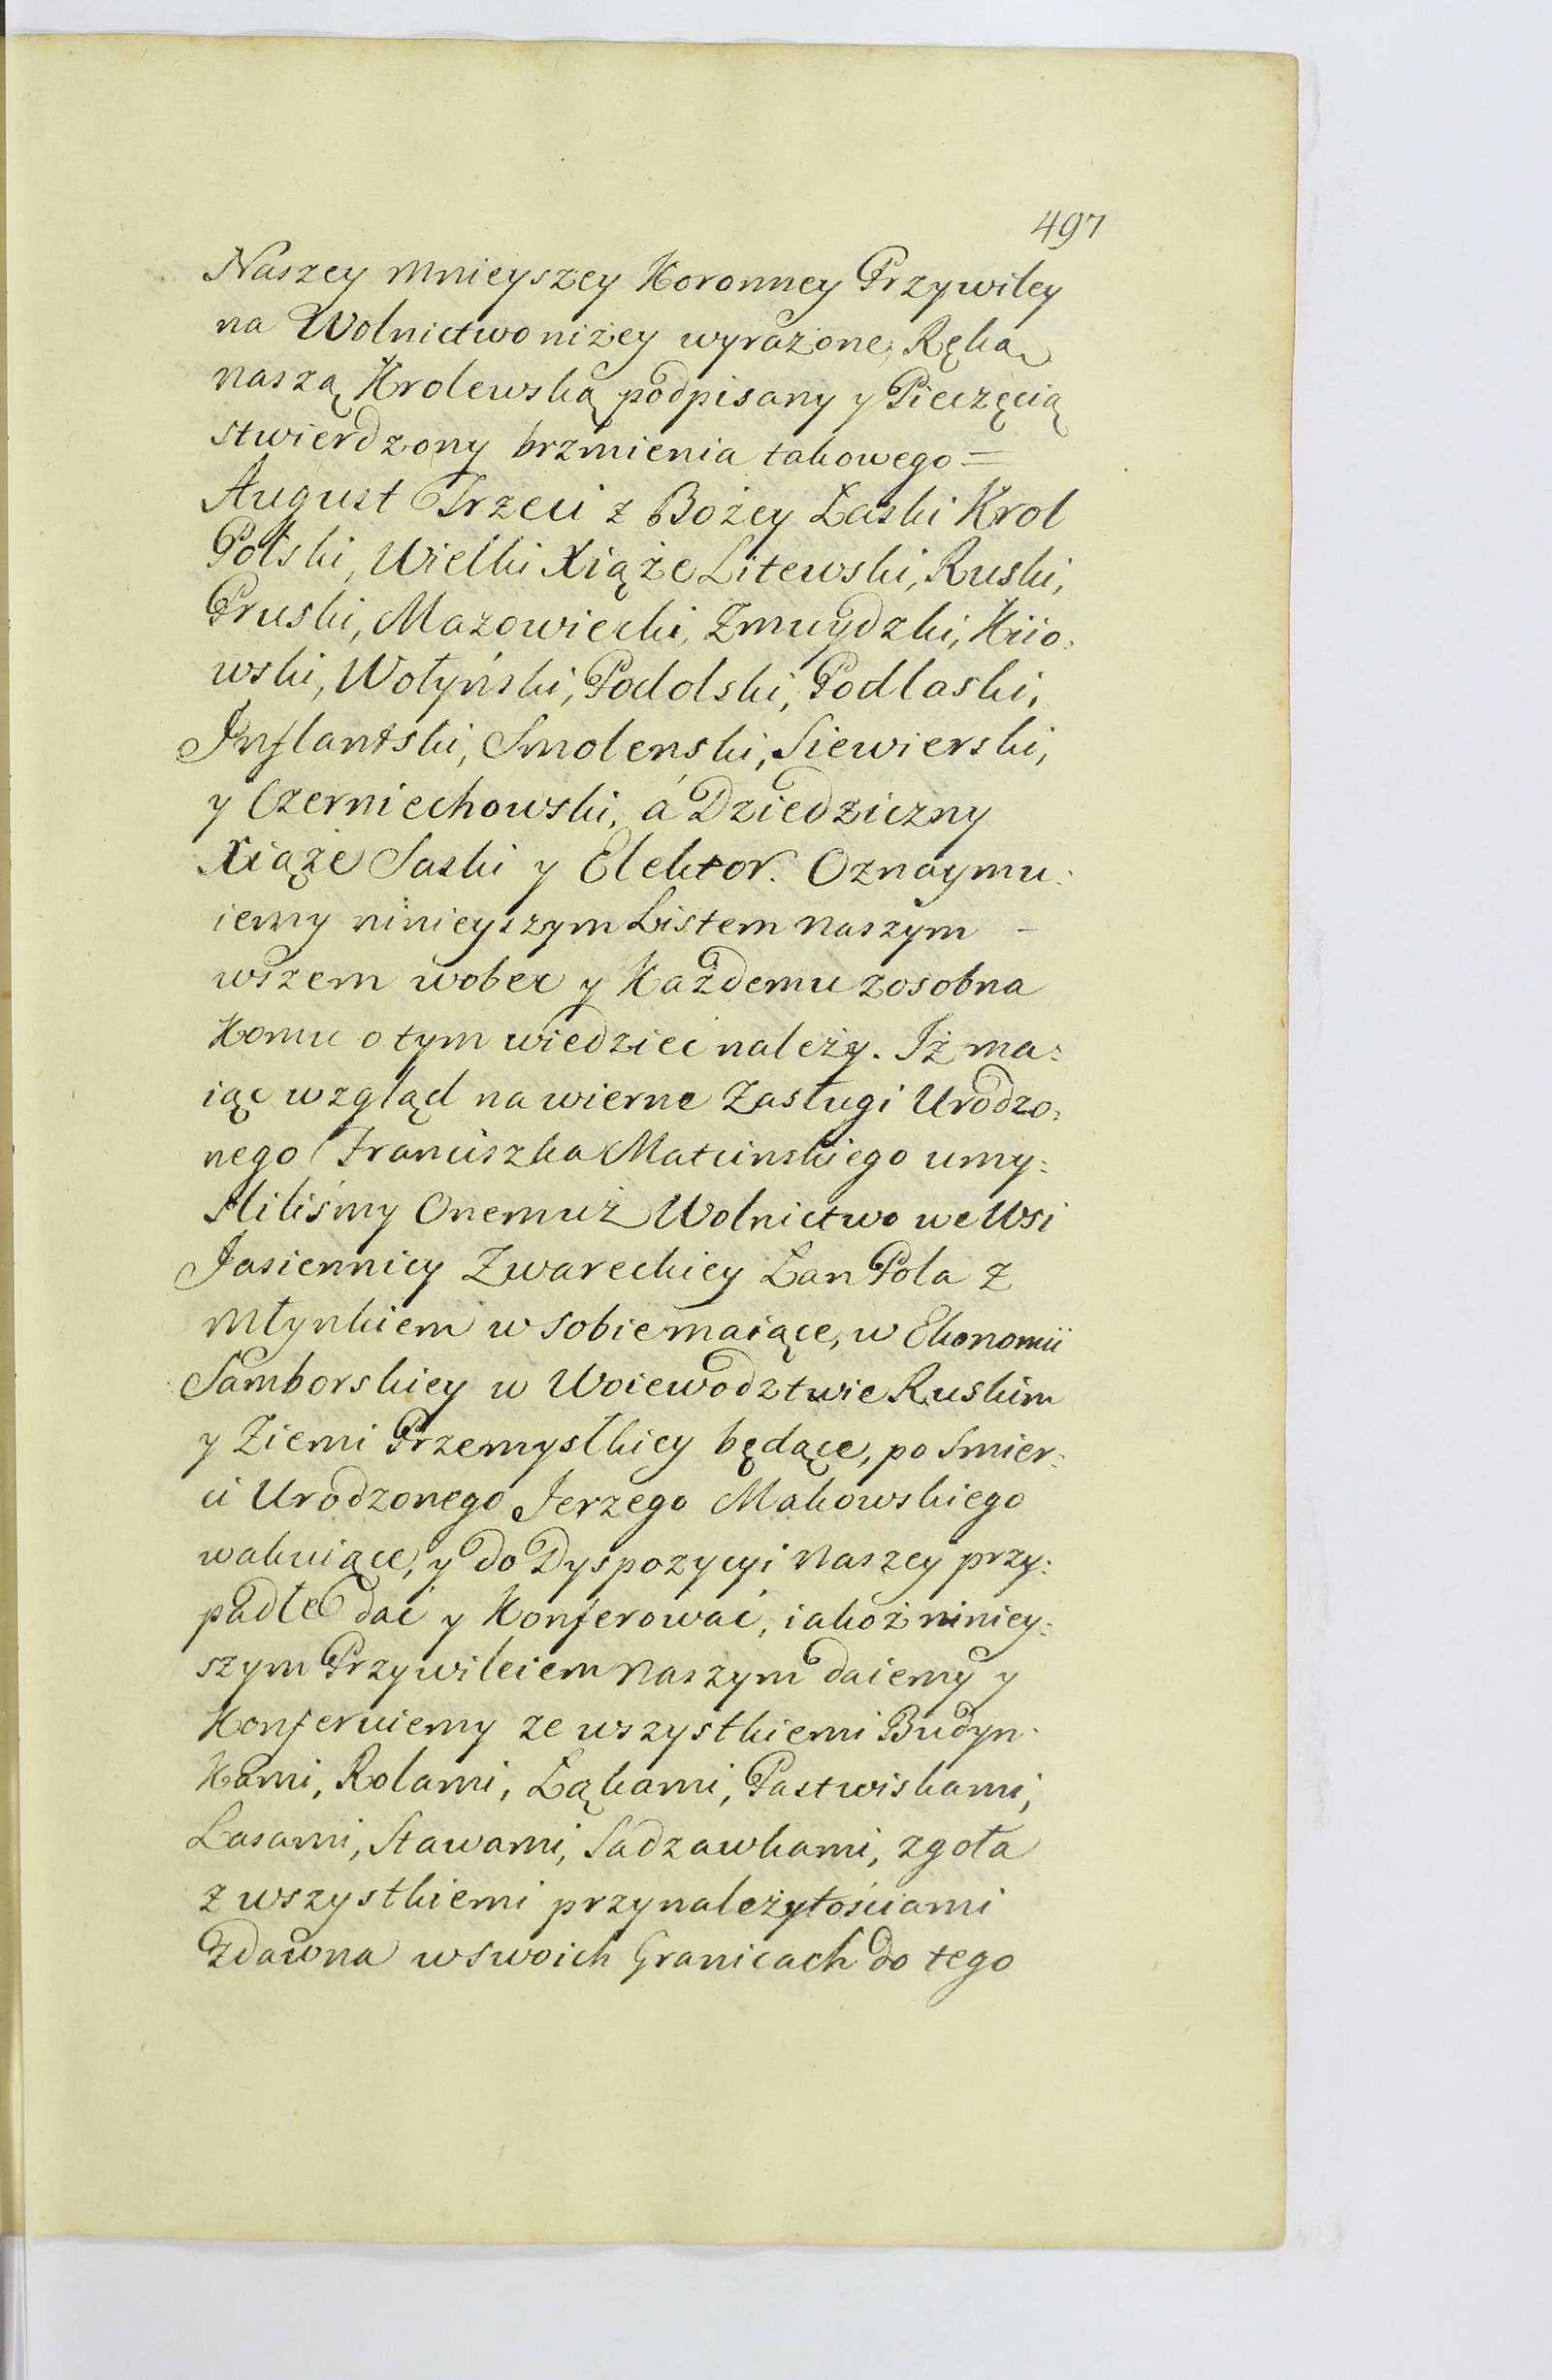 497
Naszey mnieyszey Koronney Przywiley
na Wolnictwo niżey wyrażone, Ręką
naszą Krolewską podpisany y Pieczęcią
stwierdzony brzmienia takowego =
August Trzeci z Bożey Łaski Krol
Polski, Wielki Xiąże Litewski, Ruski,
Pruski, Mazowiecki, Zmuydzki, Kiio:
wski, Wołyński, Podolski, Podlaski,
Inflantski, Smolenski, Siewierski,
y Czerniechowski, á Dziedziczny
Xiąże Saski y Elektor. Oznaymu:
iemy ninieyszym Listem naszym –
wszem wobec y Każdemu zosobna
Komu o tym wiedzieć należy. Iż ma:
iąc wzgląd na wierne Zasługi Urodzo:
nego Franciszka Matcinskiego umy:
sliliśmy Onemuż Wolnictwo we Wsi
Jasiennicy Zwareckiey Łan Pola z
Młynkiem w sobie maiące, w Ekonomii
Samborskiey w Woiewodztwie Ruskim
y Ziemi Przemyslkiey będące, po smier:
ci Urodzonego Jerzego Makowskiego
wakuiące, y do Dyspozycyi naszey przy:
padłe dać y Konferować, iakoż niniey:
szym Przywileiem naszym daiemy y
Konferuiemy ze wszystkiemi Budyn:
Kami, Rolami, Łąkami, Pastwiskami,
Lasami, Stawami, Sadzawkami, zgoła
z wszystkiemi przynależytościami
Zdawna w swoich Granicach do tego